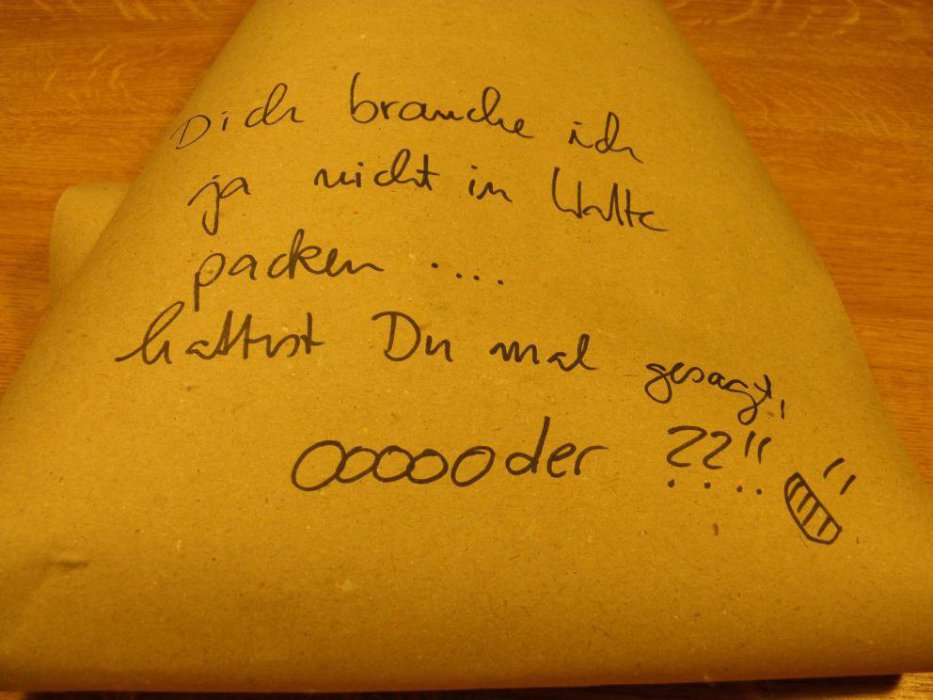 Dich brauche ich
ja nicht in Watte
packen ....
hattest Du mal gesagt,
Ooooo der ??!!